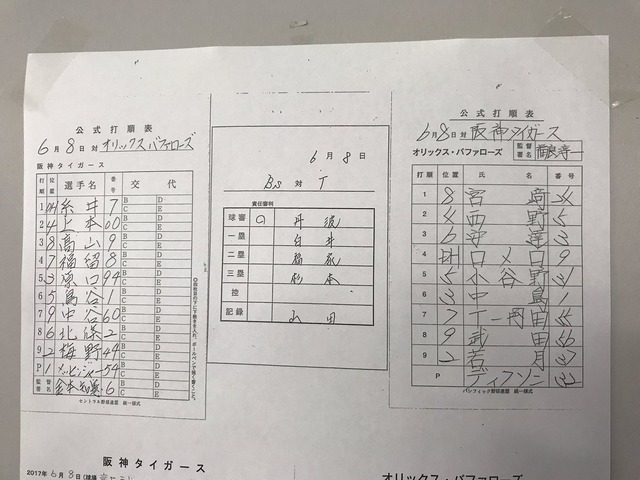 公式打順表
6月8日 対 オリックスバファローズ
阪神タイガース
打順 位置 選手名 番号 交代
1 DH 糸井 7 B D C E
2 4 上本 00 B D C E
3 8 高山 9 B D C E
4 7 福留 8 B D C E
5 3 原口 94 B D C E
6 5 鳥谷 1 B D C E
7 9 中谷 60 B D C E
8 6 北條 2 B D C E
9 2 梅野 44 B D C E
P 1 メッセンジャー 54 B D C E
監督署名 金本知憲 6 B D C E
セントラル野球連盟 統一様式
6月8日
Bs 対 T
責任審判
球審 丹波
一塁 白井
二塁 福家
三塁 杉本
控
記録 山田
公式打順表
6月8日 対 阪神タイガース
オリックス・バファローズ 監督署名 福良淳一
打順 位置 氏名
1 8 宮﨑
2 4 西野 5
3 6 安達 3
4 DH ロメロ 9
5 5 小谷野 31
6 3 中島 1
7 7 T-岡田 55
8 9 武田
9 2 若月 37
P ディクソン 32
パシフィック野球連盟 統一様式
阪神タイガース
2017年6月8日(球場
オリックス・バファローズ